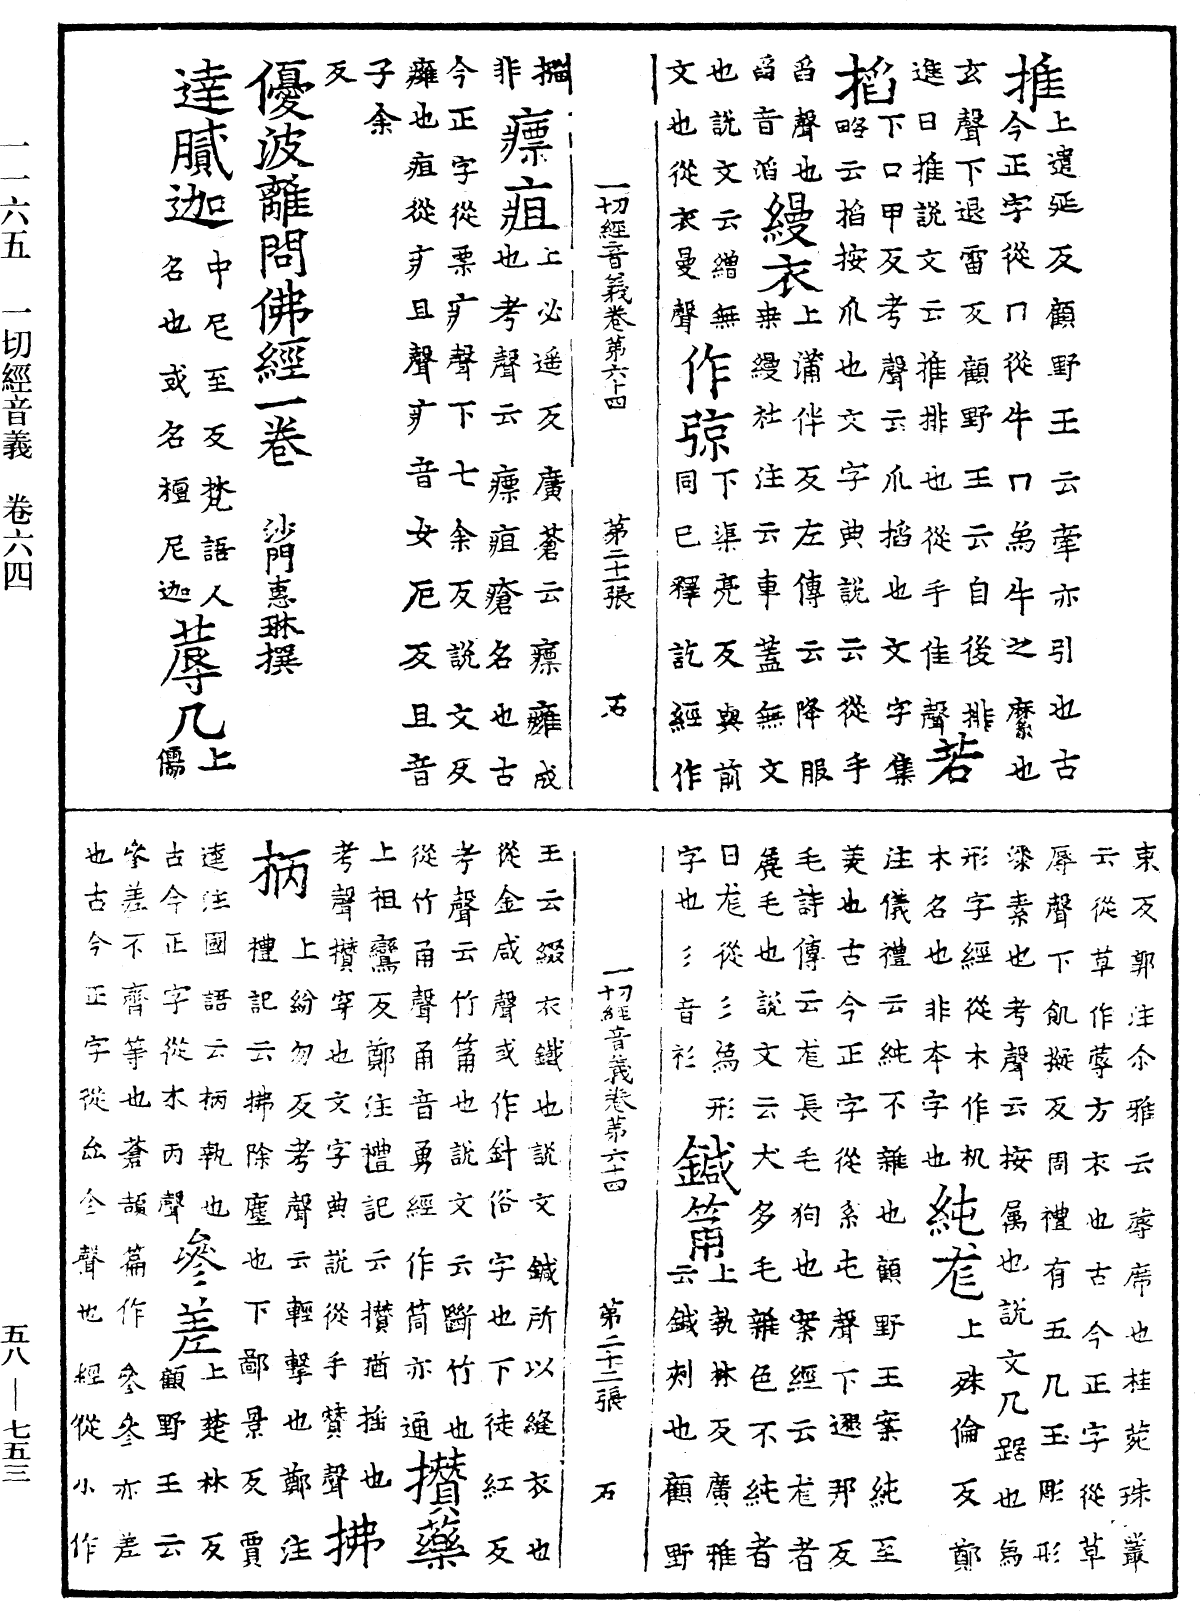 推上遣延反顧野王云牽亦引也古
今正字從冂從牛冂為牛之縻也
玄聲下退雷反顧野王云自後排
進曰推說文云推排也從手隹聲若
掐下口甲反考聲云爪掐也文字集
略云掐按爪也文字典說云從手
臽聲也縵衣上滿伴反左傳云降服
臽音滔乘縵社注云車蓋無文
也說文云繒無作弶下渠亮反與前
文也從衣曼聲同巳釋訖經作
一切經音義卷第六十四 第二十一張 石
摾
非瘭疽上必遥反廣蒼云瘭癰成
也考聲云瘭疽瘡名也古
今正字從票疒聲下七余反說文久
癰也疽從疒且聲疒音女厄反且音
子余
反
優波離問佛經一卷 沙門惠琳撰
達膩迦中尼至反梵語人
名也或名檀尼迦蓐几上
儒
束反郭注尒雅云蓐席也桂菀珠叢
云從草作蓐方衣也古今正字從草
辱聲下飢擬反周禮有五几玉彫彤
漆素也考聲云按属也說文几踞也為
形字經從木作机
木名也非本字也純尨上殊倫反鄭
注儀禮云純不雜也顧野王案純至
美也古今正字從糸屯聲下邈邦反
毛詩傳云尨長毛狗也案經云尨者
庬毛也說文云犬多毛雜色不純者
曰尨從彡為形鍼筩上執林反廣雅
字也彡音衫云鍼刺也顧野
一切經音義卷第六十四 第二十二張 石
王云綴衣鐵也說文鍼所以縫衣也
從金咸聲或作針俗字也下徒紅反
考聲云竹筩也說文云斷竹也
從竹甬聲甬音勇經作筒亦通攢藥
上祖鸞反鄭注禮記云攢猶揺也
考聲攢穿也文字典說從手贊聲拂
柄上紛勿反考聲云輕擊也鄭注
禮記云拂除塵也下鄙景反賈
逵注國語云柄執也
古今正字從木丙聲參差上楚林反
參差不齊等也蒼頡篇作㕘參亦差
也古今正字從厽㐱聲也經從小作
一一六五 一切經音義 卷六四
五八—七五三